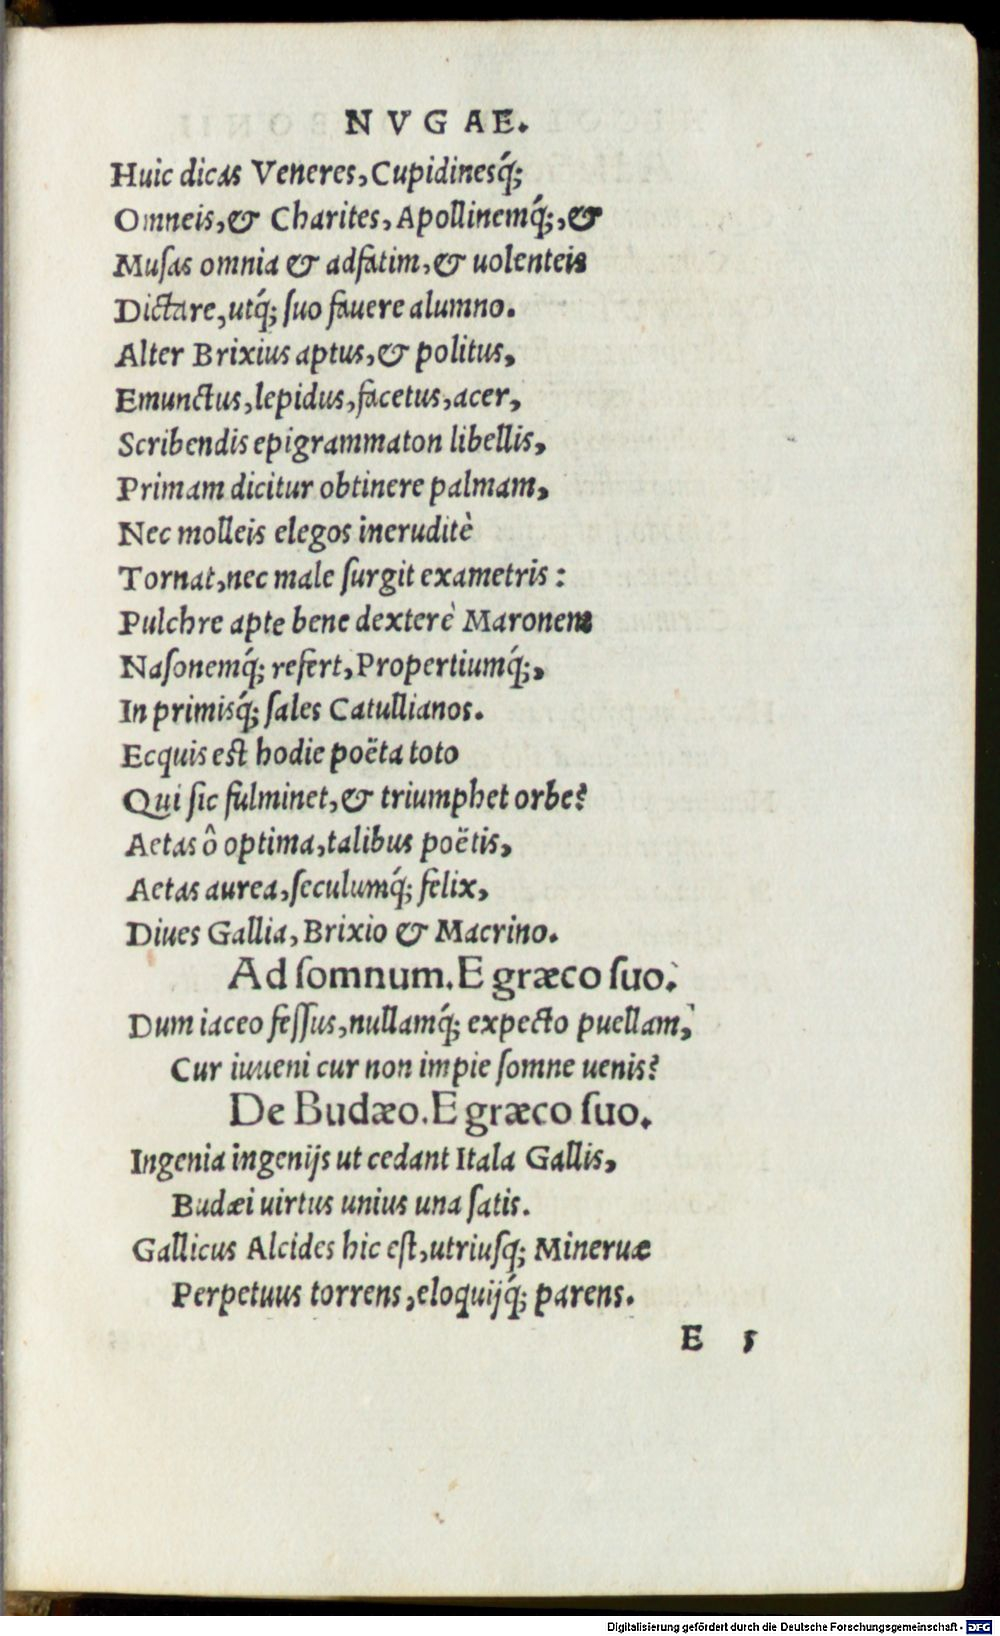 NVGAE.
Huic dicas Veneres, Cupidinesq́;
Omneis, & Charites, Apollinemq́;, &
Musas omnia & adfatim, & uolenteis
Dictare, utq́; suo fauere alumno.
Alter Brixius aptus, & politus,
Emunctus, lepidus, facetus, acer,
Scribendis epigrammaton libellis,
Primam dicitur obtinere palmam,
Nec molleis elegos ineruditè
Tornat, nec male surgit exametris:
Pulchre apte bene dexterè Maronem
Nasonemq́; refert, Propertiumq́;,
In primisq́; sales Catullianos.
Ecquis est hodie poëta toto
Qui sic fulminet, & triumphet orbe?
Aetas ô optima, talibus poëtis,
Aetas aurea, seculumq́; felix,
Diues Gallia, Brixio & Macrino.
Ad somnum. E græco suo.
Dum iaceo fessus, nullamq́; expecto puellam,
Cur iuueni cur non impie somne uenis?
De Budæo. E græco suo.
Ingenia ingenijs ut cedant Itala Gallis,
Budæi uirtus unius una satis.
Gallicus Alcides hic est, utriusq; Mineruæ
Perpetuus torrens, eloquijq́; parens.
E 5
Digitalisierung gefördert durch die Deutsche Forschungsgemeinschaft - DFG